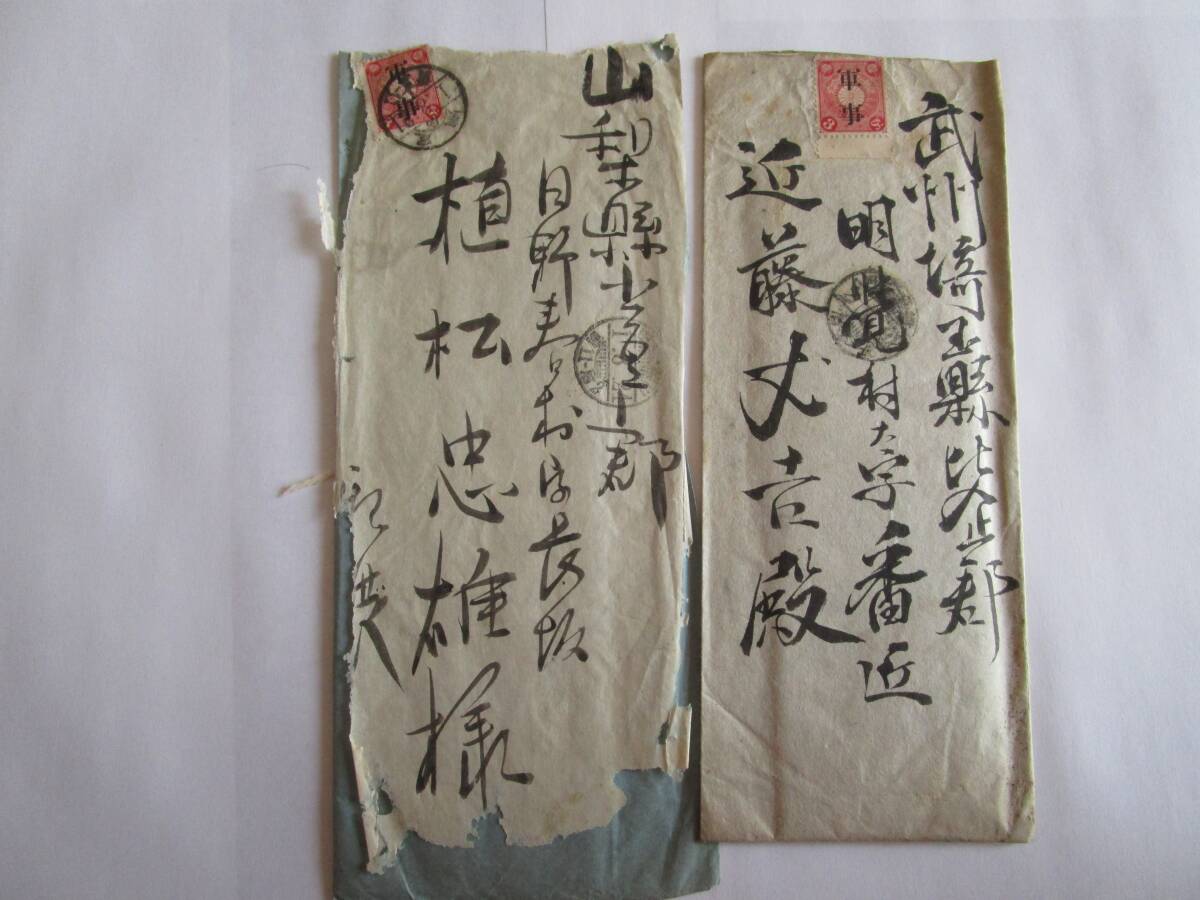 軍事
山梨縣北巨摩郡
日野春村字長坂
植松忠雄様
軍事
武州埼玉縣比企郡
明覚村大字番匠
近藤丈吉殿